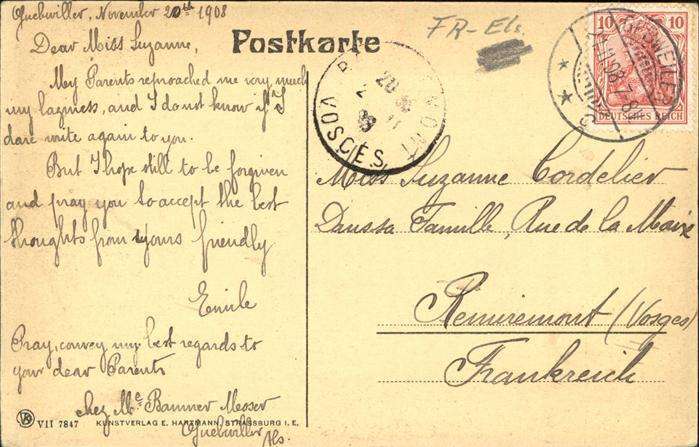 Guebwiller, November 20th 1908
Dear Miss Suzanne,
My Parents reproached me very much
my laziness, and I do not know if I
dare write again to you.
But I hope still to be forgiven
and pray you to accept the best
thoughts from yours friendly
Emile
Pray, convey my best regards to
your dear Parents
chez Me Banner Messer
Guebwiller Als.
VII 7847 KUNSTVERLAG E. HARTMANN STRASSBURG I. E.
Postkarte
FR-Els.
10 10
DEUTSCHES REICH
VOSGES
Miss Suzanne Cordelier
Famille, Rue de la
Remiremont (Vosges)
Frankreich